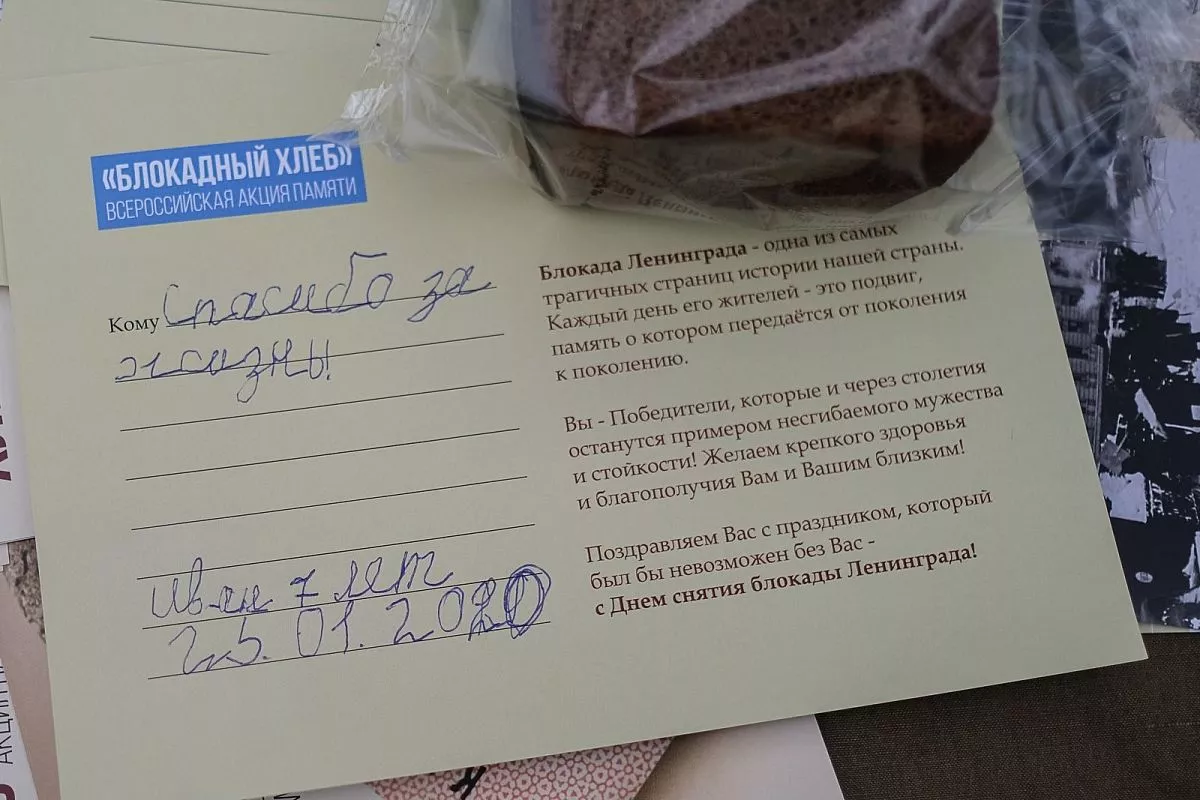 «БЛОКАДНЫЙ ХЛЕБ»
ВСЕРОССИЙСКАЯ АКЦИЯ ПАМЯТИ
Кому Спасибо за
жизнь!
Иван 7 лет
25.01.2020
Блокада Ленинграда - одна из самых
трагичных страниц истории нашей страны.
Каждый день его жителей - это подвиг,
память о котором передаётся от поколения
к поколению.
Вы - Победители, которые и через столетия
останутся примером несгибаемого мужества
и стойкости! Желаем крепкого здоровья
и благополучия Вам и Вашим близким!
Поздравляем Вас с праздником, который
был бы невозможен без Вас -
с Днем снятия блокады Ленинграда!